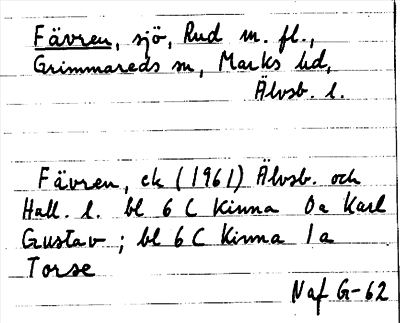 Fävren, sjö, Rud m. fl.,
Grimmareds sn, Marks hd,
Älvsb. l.
Fävren, ek (1961) Älvsb. och
Hall. l. bl 6 C Kinna 0a Karl
Gustav ; bl 6 C Kinna 1a
Torse
Naf G-62